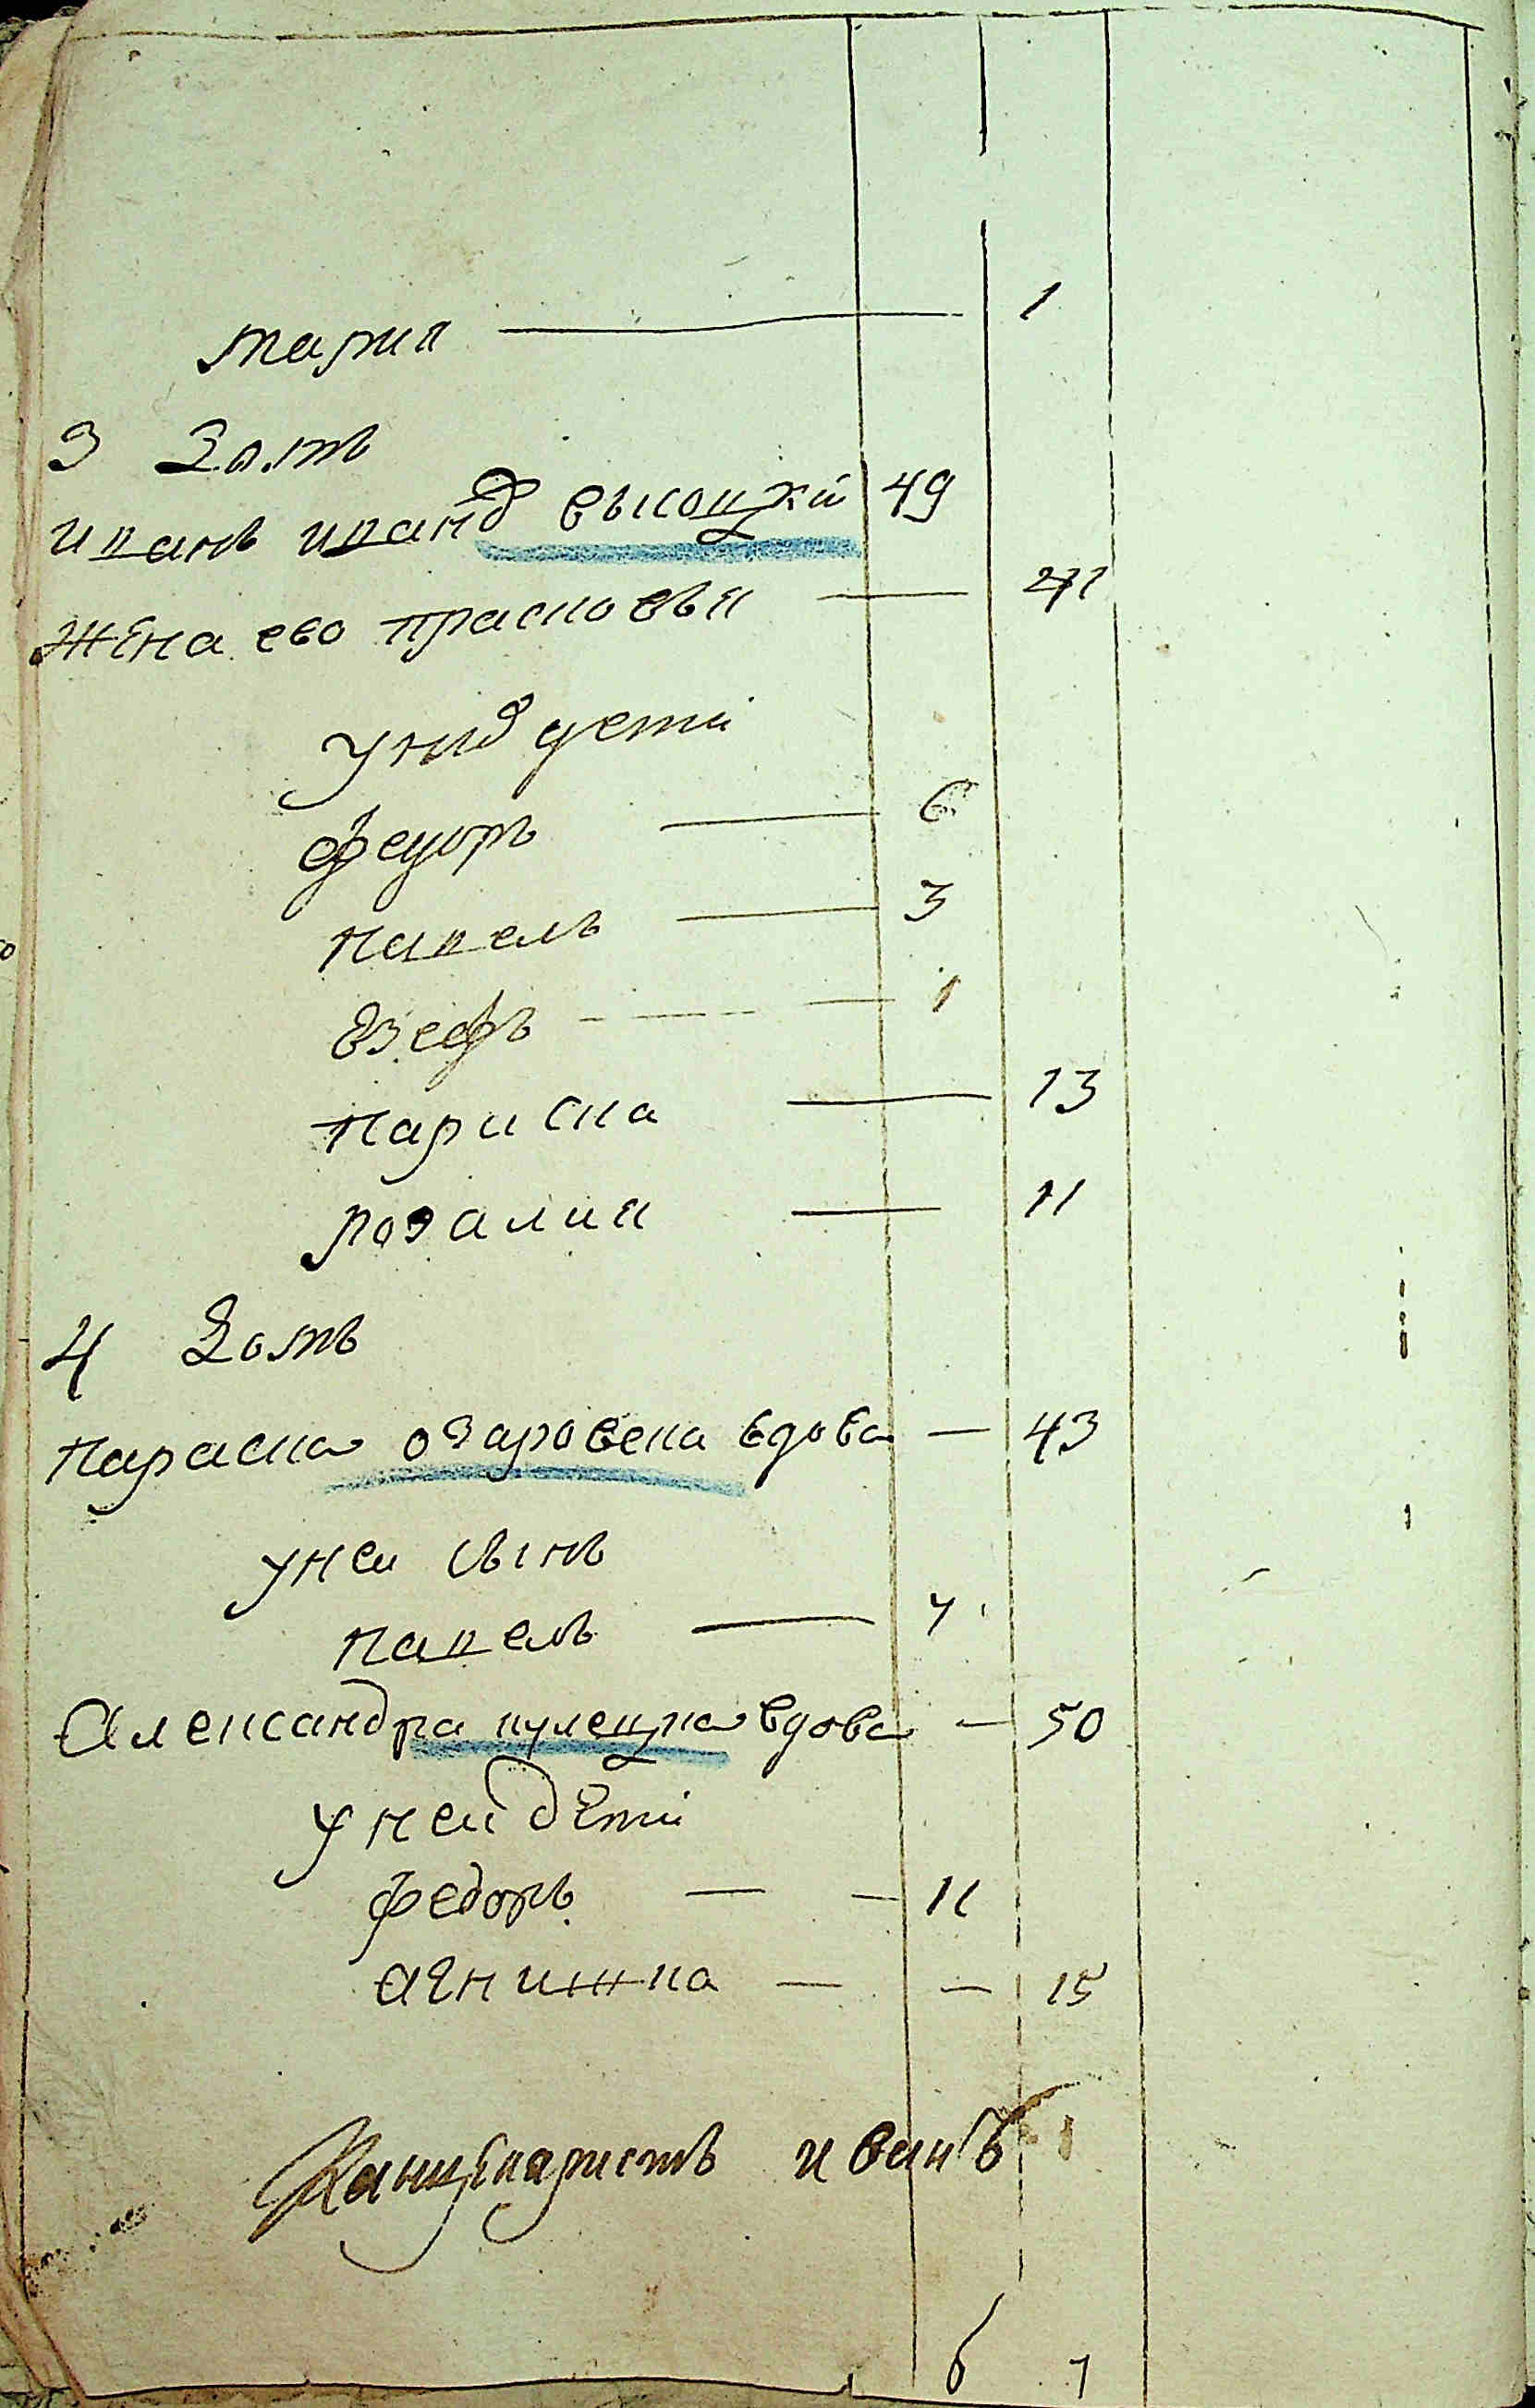 мария — 1
3 Домъ
иванъ иванов высоцкий 49
жена его прасковья — 41
у них дети
федоръ — 6
павелъ — 3
Юзефъ — 1
париска — 13
розалия — 11
4 Домъ
параска озаровска вдова — 43
у неи сынъ
павелъ — 4
Александра кулецка вдова — 50
у ней дети
федоръ — 11
агнижка — 15
Канцеляристъ иванъ
6 7